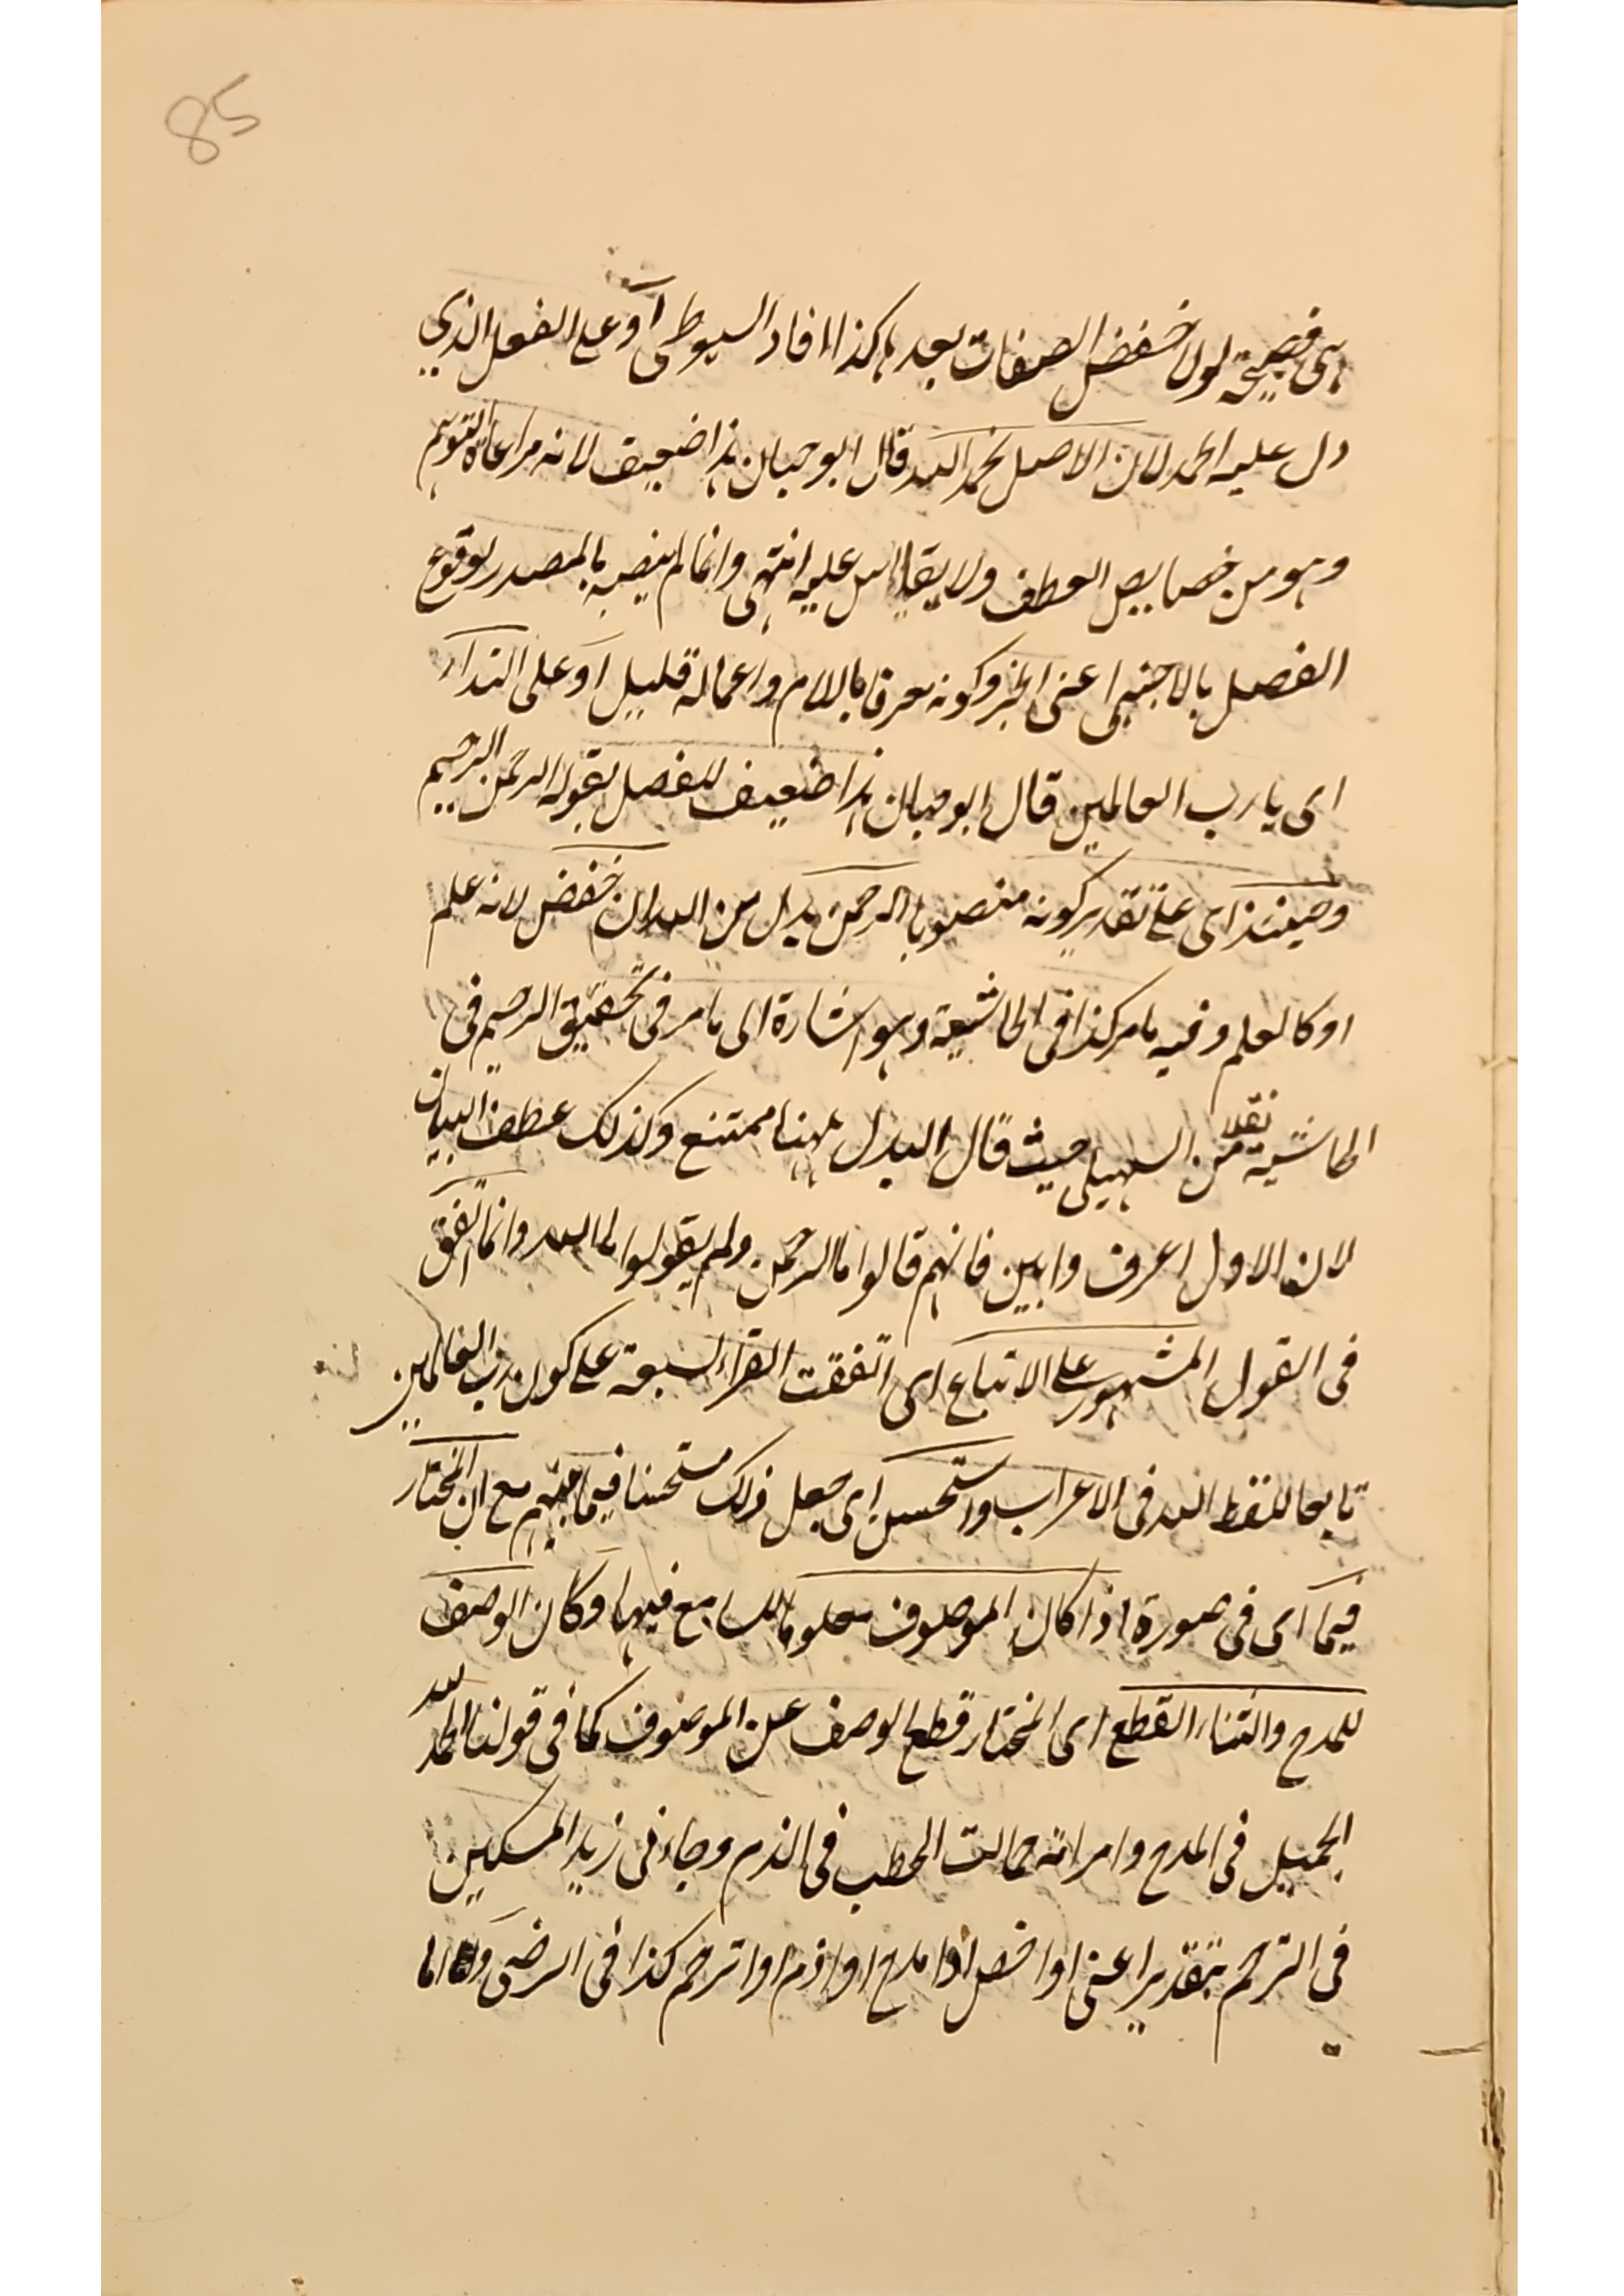 85
هى فصيحة لولا خفض الصفات بعدها كذا افاد السيوطى او على الفعل الذي
دل عليه الحمد لان الاصل نحمد الله قال ابو حيان هذا ضعيف لانه مراعاة التوهم
وهو من خصايص العطف ولا يقاس عليه انتهى وانما لم ينصبه بالمصدر لوقوع
الفصل بالاجنبى اعنى الخبر وكونه معرفا باللام واعماله قليل او على النداء
اى يا رب العالمين قال ابو حيان هذا ضعيف للفصل بقوله الرحمن الرحيم
وحينئذ اى على تقدير كونه منصوبا الرحمن بدل من الله ان خفض لانه علم
او كالعلم وفيه ما مر كذا فى الحاشية وهو اشارة الى ما مر فى تحقيق الرحيم فى
الحاشية نقلا من السهيلى حيث قال البدل ههنا ممتنع وكذلك عطف البيان
لان الاول اعرف وابين فانهم قالوا ما الرحمن ولم يقولوا ما الله وانما اتفق
فى القول المشهور على الاتباع اى اتفقت القراء السبعة على كون رب العالمين
تابعا للفظ الله فى الاعراب واستحسن اى جعل ذلك مستحسنا فيما بينهم مع ان المختار
فيما اى فى صورة اذا كان الموصوف معلوما للسامع فيها وكان الوصف
للمدح والثناء القطع اى المختار قطع الوصف عن الموصوف كما فى قولنا الحمد لله
الجميل فى المدح وامراته حمالت الحطب فى الذم وجاءنى زيد المسكين
فى الترحم بتقدير اعنى او اخص او امدح او اذم او اترحم كذا فى الرضى و اما